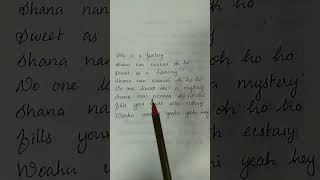 She is a fantasy
Shana nan nanana oh ho
Sweet as a harmony
Shana nan nanana oh ho ho
No one know she's a mystery
Shana nan nanana oh ho ho
Fills your heart with ecstasy
Woahu yeahi yeahi yeah hey